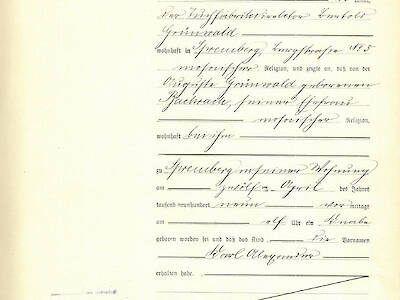 Der Tuchfabrikdirektor Bertold
Grünwald
wohnhaft in Spremberg, Burgstrasse No 5
mosaischer Religion, und zeigte an, daß von der
Auguste Grünwald geborenen
Bachrach, seiner Ehefrau
mosaischer Religion,
wohnhaft bei ihm
zu Spremberg in seiner Wohnung
am zwölften April des Jahres
tausend neunhundert neun vor mittags
um elf Uhr ein Knabe
geboren worden sei und daß das Kind die Vornamen
Karl Alexander
erhalten habe.